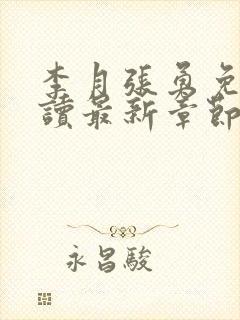 李月張勇免
讀最新章節
永昌駿